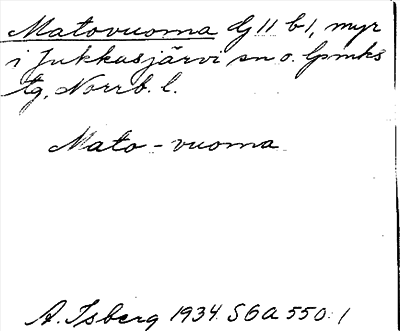 Matovuoma dj 11 b 1, myr
i Jukkasjärvi sn o. lpmks
tg, Norrb. l.
Mato-vuoma
A. Isberg 1934 SGA 550:1